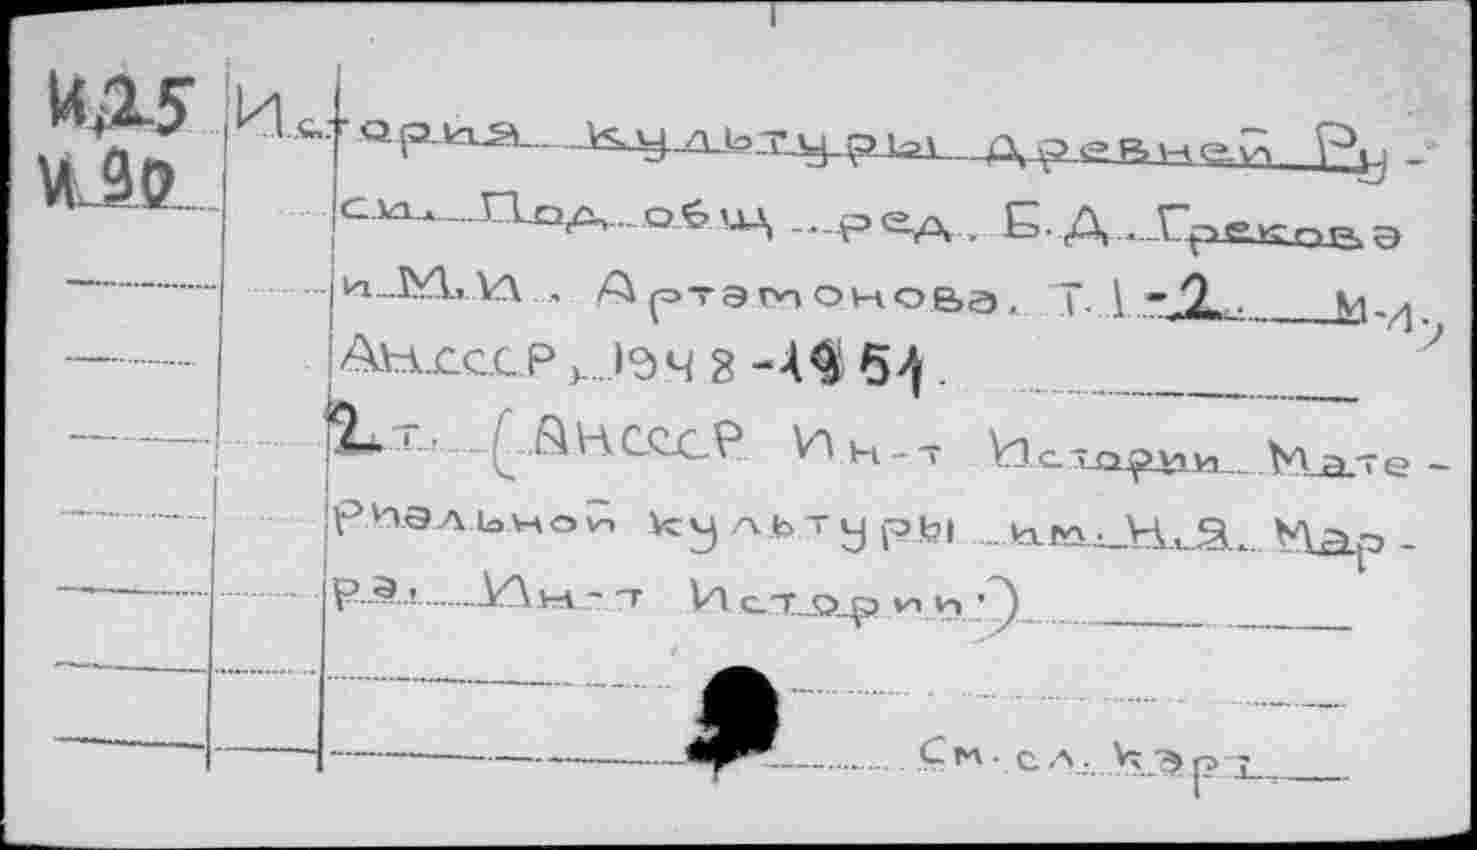 И,25
И 90
История культуры Древней Ру-
си. Под общ. ред. Б.Д. Грекова
и М.И. Артамонова. Т.1-2. М-Л.,
АНСССР, 1948-1951.
2 т. (АНСССР Ин-т Истории Мате-
риальной культуры им. Н.Я. Мар-
ра. Ин-т Истории.)
См. сл. карт.